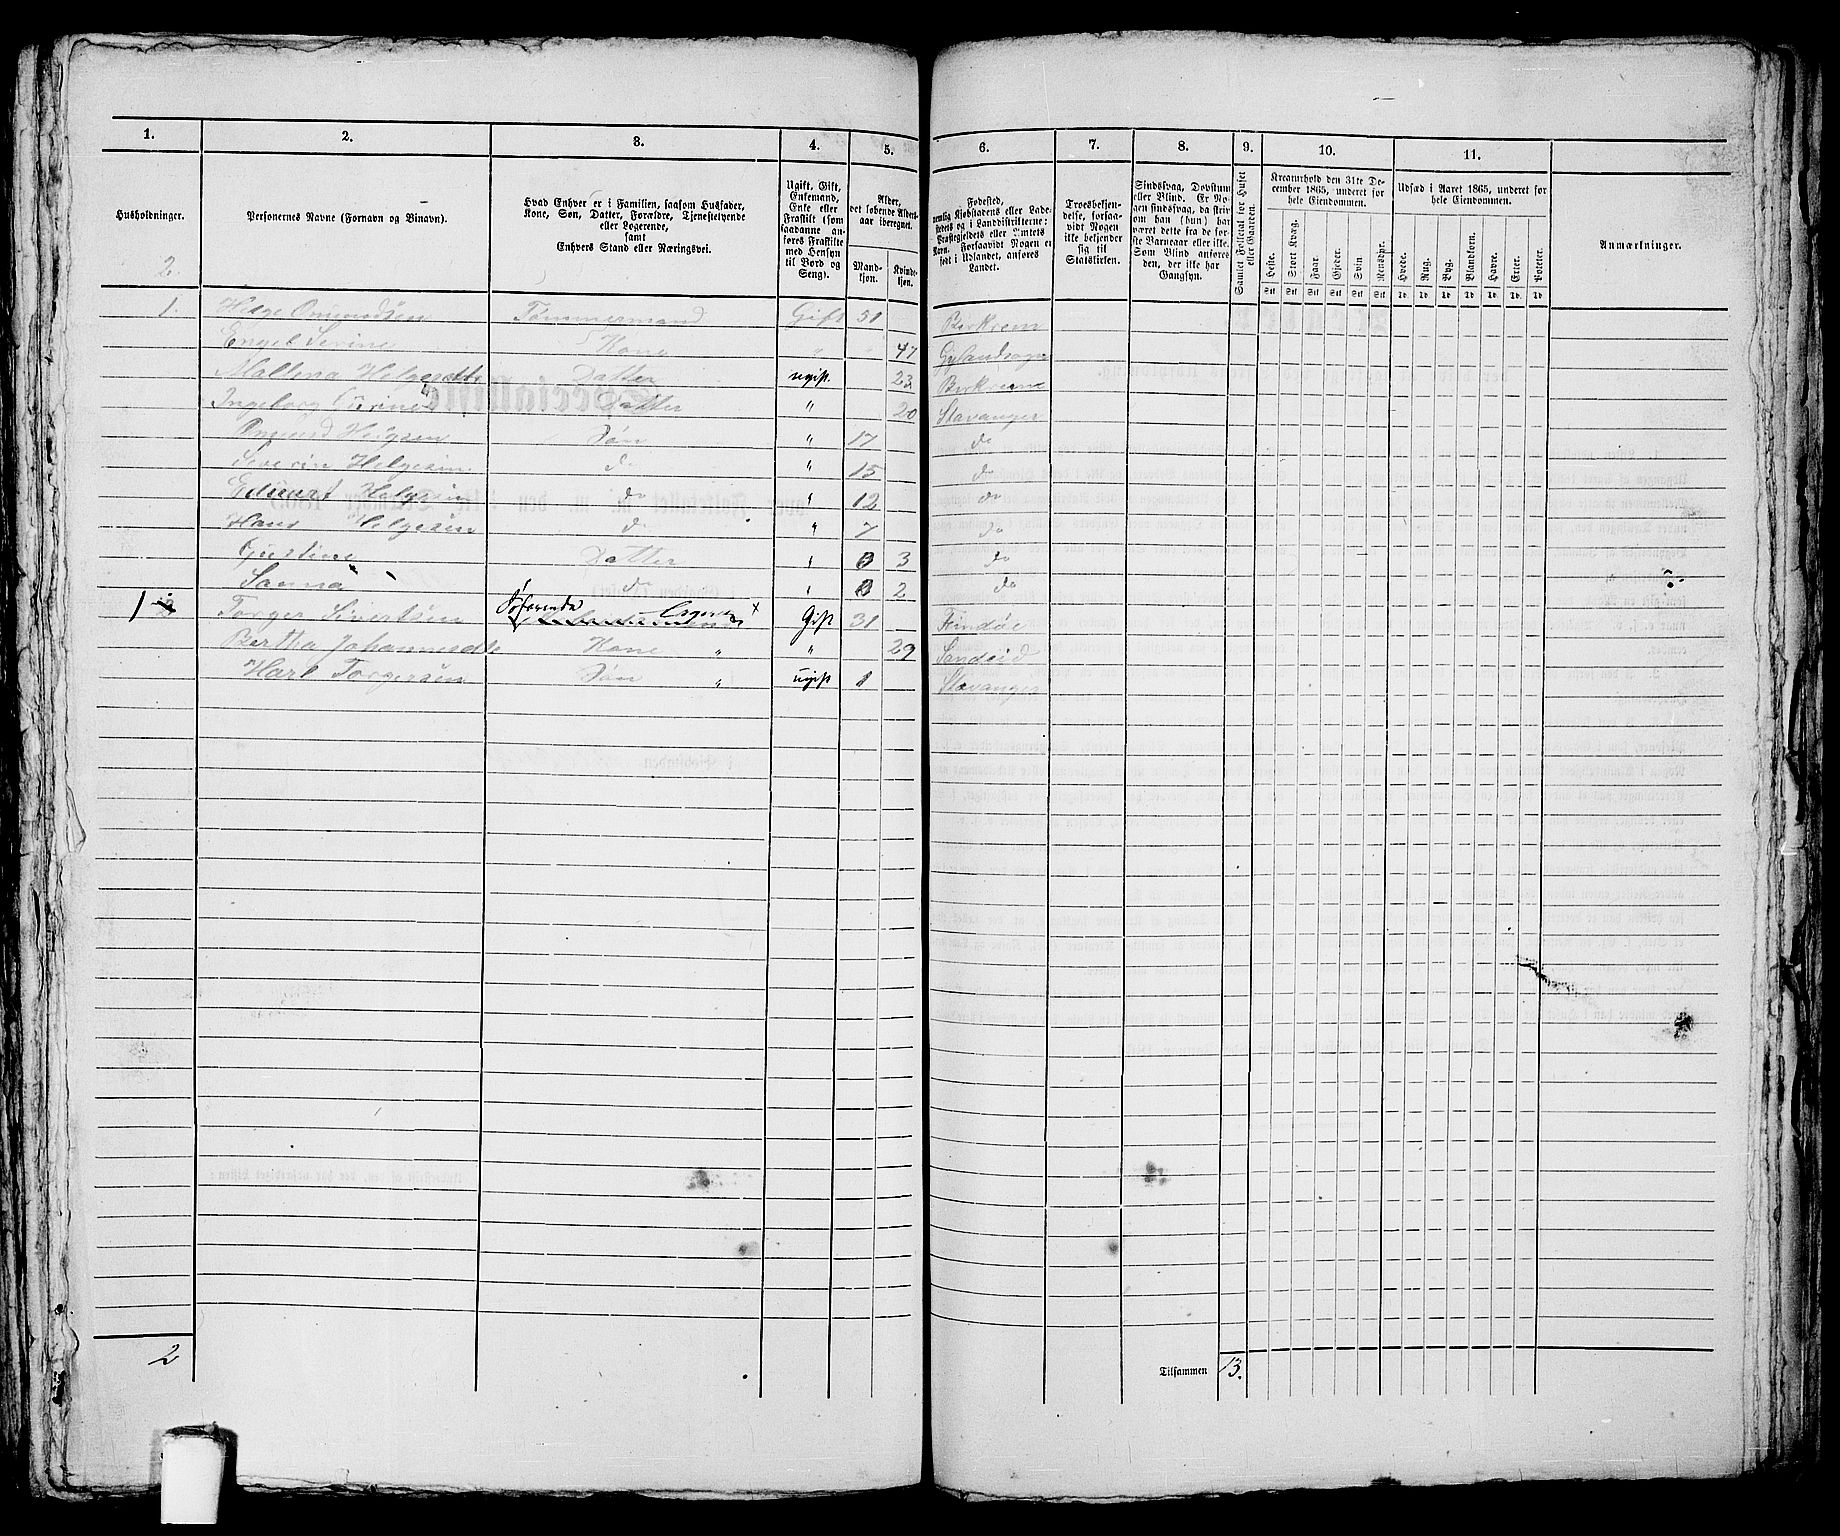 1. 2. 3. 4. 5. 6. 7. 8. 9. 10. 11.
Husholdninger.
Personernes Navne (Fornavn og Binavn).
Hvad Enhver er i Familien, saasom Husfader, Kone, Søn, Datter, Forældre, Tjenestetyende eller Logerende, samt Enhvers Stand eller Næringsvei.
Ugift, Gift, Enkemand, Enke eller Fraskilt (som saadanne anføres Fraskilte med Hensyn til Bord og Seng).
Alder, det løbende Aldersaar iberegnet.
Mandkjøn. Kvindekjøn.
Fødested, nemlig Kjøbstadens eller Ladestedets og i Landdistrikterne: Præstegjeldets eller Amtets Navn. Forsaavidt Nogen er født i Udlandet, anføres Landet.
Troesbekjendelse, forsaavidt Nogen ikke bekjender sig til Statskirken.
Sindssvag, Døvstum eller Blind. Er Nogen sindssvag, da skriv om han (hun) har været dette fra de første Barneaar eller ikke. Som Blind anføres den, der ikke har Gangsyn.
Samlet Folketal for Huset eller Gaarden.
Kreaturhold den 31te December 1865, underet for hele Eiendommen.
Heste. Stort Kvæg. Faar. Gjeder. Svin. Rensdyr.
Udsæd i Aaret 1865, underet for hele Eiendommen.
Hvede. Rug. Byg. Blandkorn. Havre. Erter. Poteter.
Anmærkninger.
Stk Stk Stk Stk Stk Stk Td. Td. Td. Td. Td. Td. Td.
2.
1. Helge Omundsen Tømmermand Gift 51 Birkrem
Engel Serine Kone " " 47 Gylandsogn
Mallena Helgesdtr Datter ugift. 23 Birkrem
Ingeborg Serine Datter " 20 Stavanger
Omund Helgesen Søn " 17 do
Severin Helgesen do " 15 do
Edvard Helgesen do " 12 do
Hans Helgesen do " 7 do
Gustine Datter " 3 do
Sanna do " 2 do
1 Torger Sivertsen Søfarende Logerende × Gift 31 Findøe
Bertha Johannesdtr Kone " " 29 Sandeid
Karl Torgersen Søn " ugift 1 Stavanger
2
Tilsammen 13.